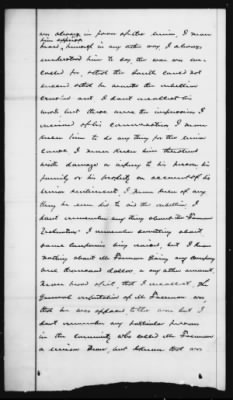 was always in favor of the Union, I never
him express
heard himself in any other way, I always
understood him to say the war was un-
called for, that the South could not
succeed that he wanted the rebellion
crushed out I don't recollect his
words but those were the impression I
received of his conversation I never
knew him to do any thing for the union
cause I never knew him threatened
with damage or injury to his person his
family or his property on account of his
union sentiment, I know of any
thing he ever did to aid the rebellion, I
don't remember any thing about the
I remember something about
some companies being raised, but I know
nothing about Mr giving any company
one thousand dollars or any other amount.
Never heard of it that I recollect, The
general reputation of Mr was,
that he was opposed to the war but I
don't remember any particular person
in the community who called Mr
a union man, but believe that was